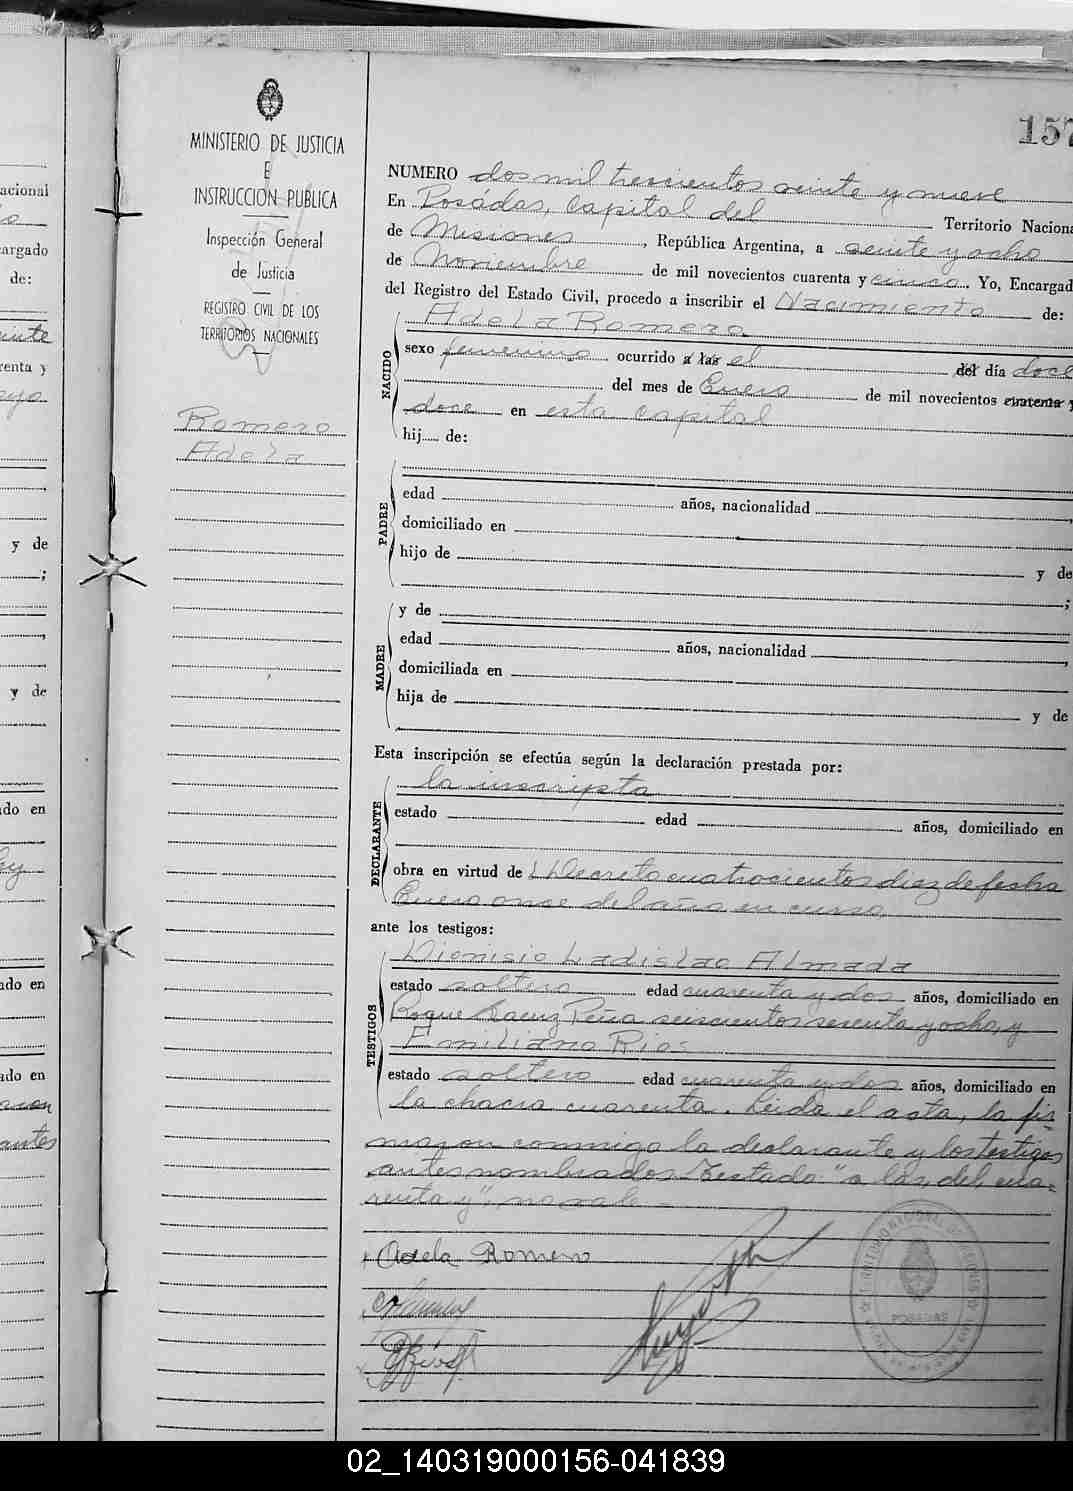 157
MINISTERIO DE JUSTICIA
E
INSTRUCCION PUBLICA
Inspección General
de Justicia
REGISTRO CIVIL DE LOS
TERRITORIOS NACIONALES
Romero
Adela
NUMERO dos mil trescientos veinte y nueve
En Posádas, Capital del Territorio Naciona
de Misiones, República Argentina, a veinte y ocho
de Noviembre de mil novecientos cuarenta y cinco. Yo, Encargad
del Registro del Estado Civil, procedo a inscribir el Nacimiento de:
NACIDO
Adela Romero
sexo femenino ocurrido a las el del día doce
del mes de Enero de mil novecientos cuarenta y
doce en esta capital
hij de:
PADRE
edad años, nacionalidad
domiciliado en
hijo de y de
;
MADRE
y de
edad años, nacionalidad
domiciliada en
hija de y de
Esta inscripción se efectúa según la declaración prestada por:
DECLARANTE
la inscripta
estado edad años, domiciliado en
obra en virtud de Decreto cuatrocientos diez de fecha
Enero once del año en curso
ante los testigos:
TESTIGOS
Dionisio Ladislao Almada
estado soltero edad cuarenta y dos años, domiciliado en
Roque Saenz Peña seiscientos sesenta y ocho, y
Emiliano Rios
estado soltero edad cuarenta y dos años, domiciliado en
la chacra cuarenta. Leida el acta, la fir-
maron conmigo la declarante y los testigos
antes nombrados. Testado "a las, del, cua-
renta y", no vale
Adela Romero
POSADAS
acional
cargado
de:
renta y
y de
;
y de
do en
ado en
ado en
antes
02_140319000156-041839